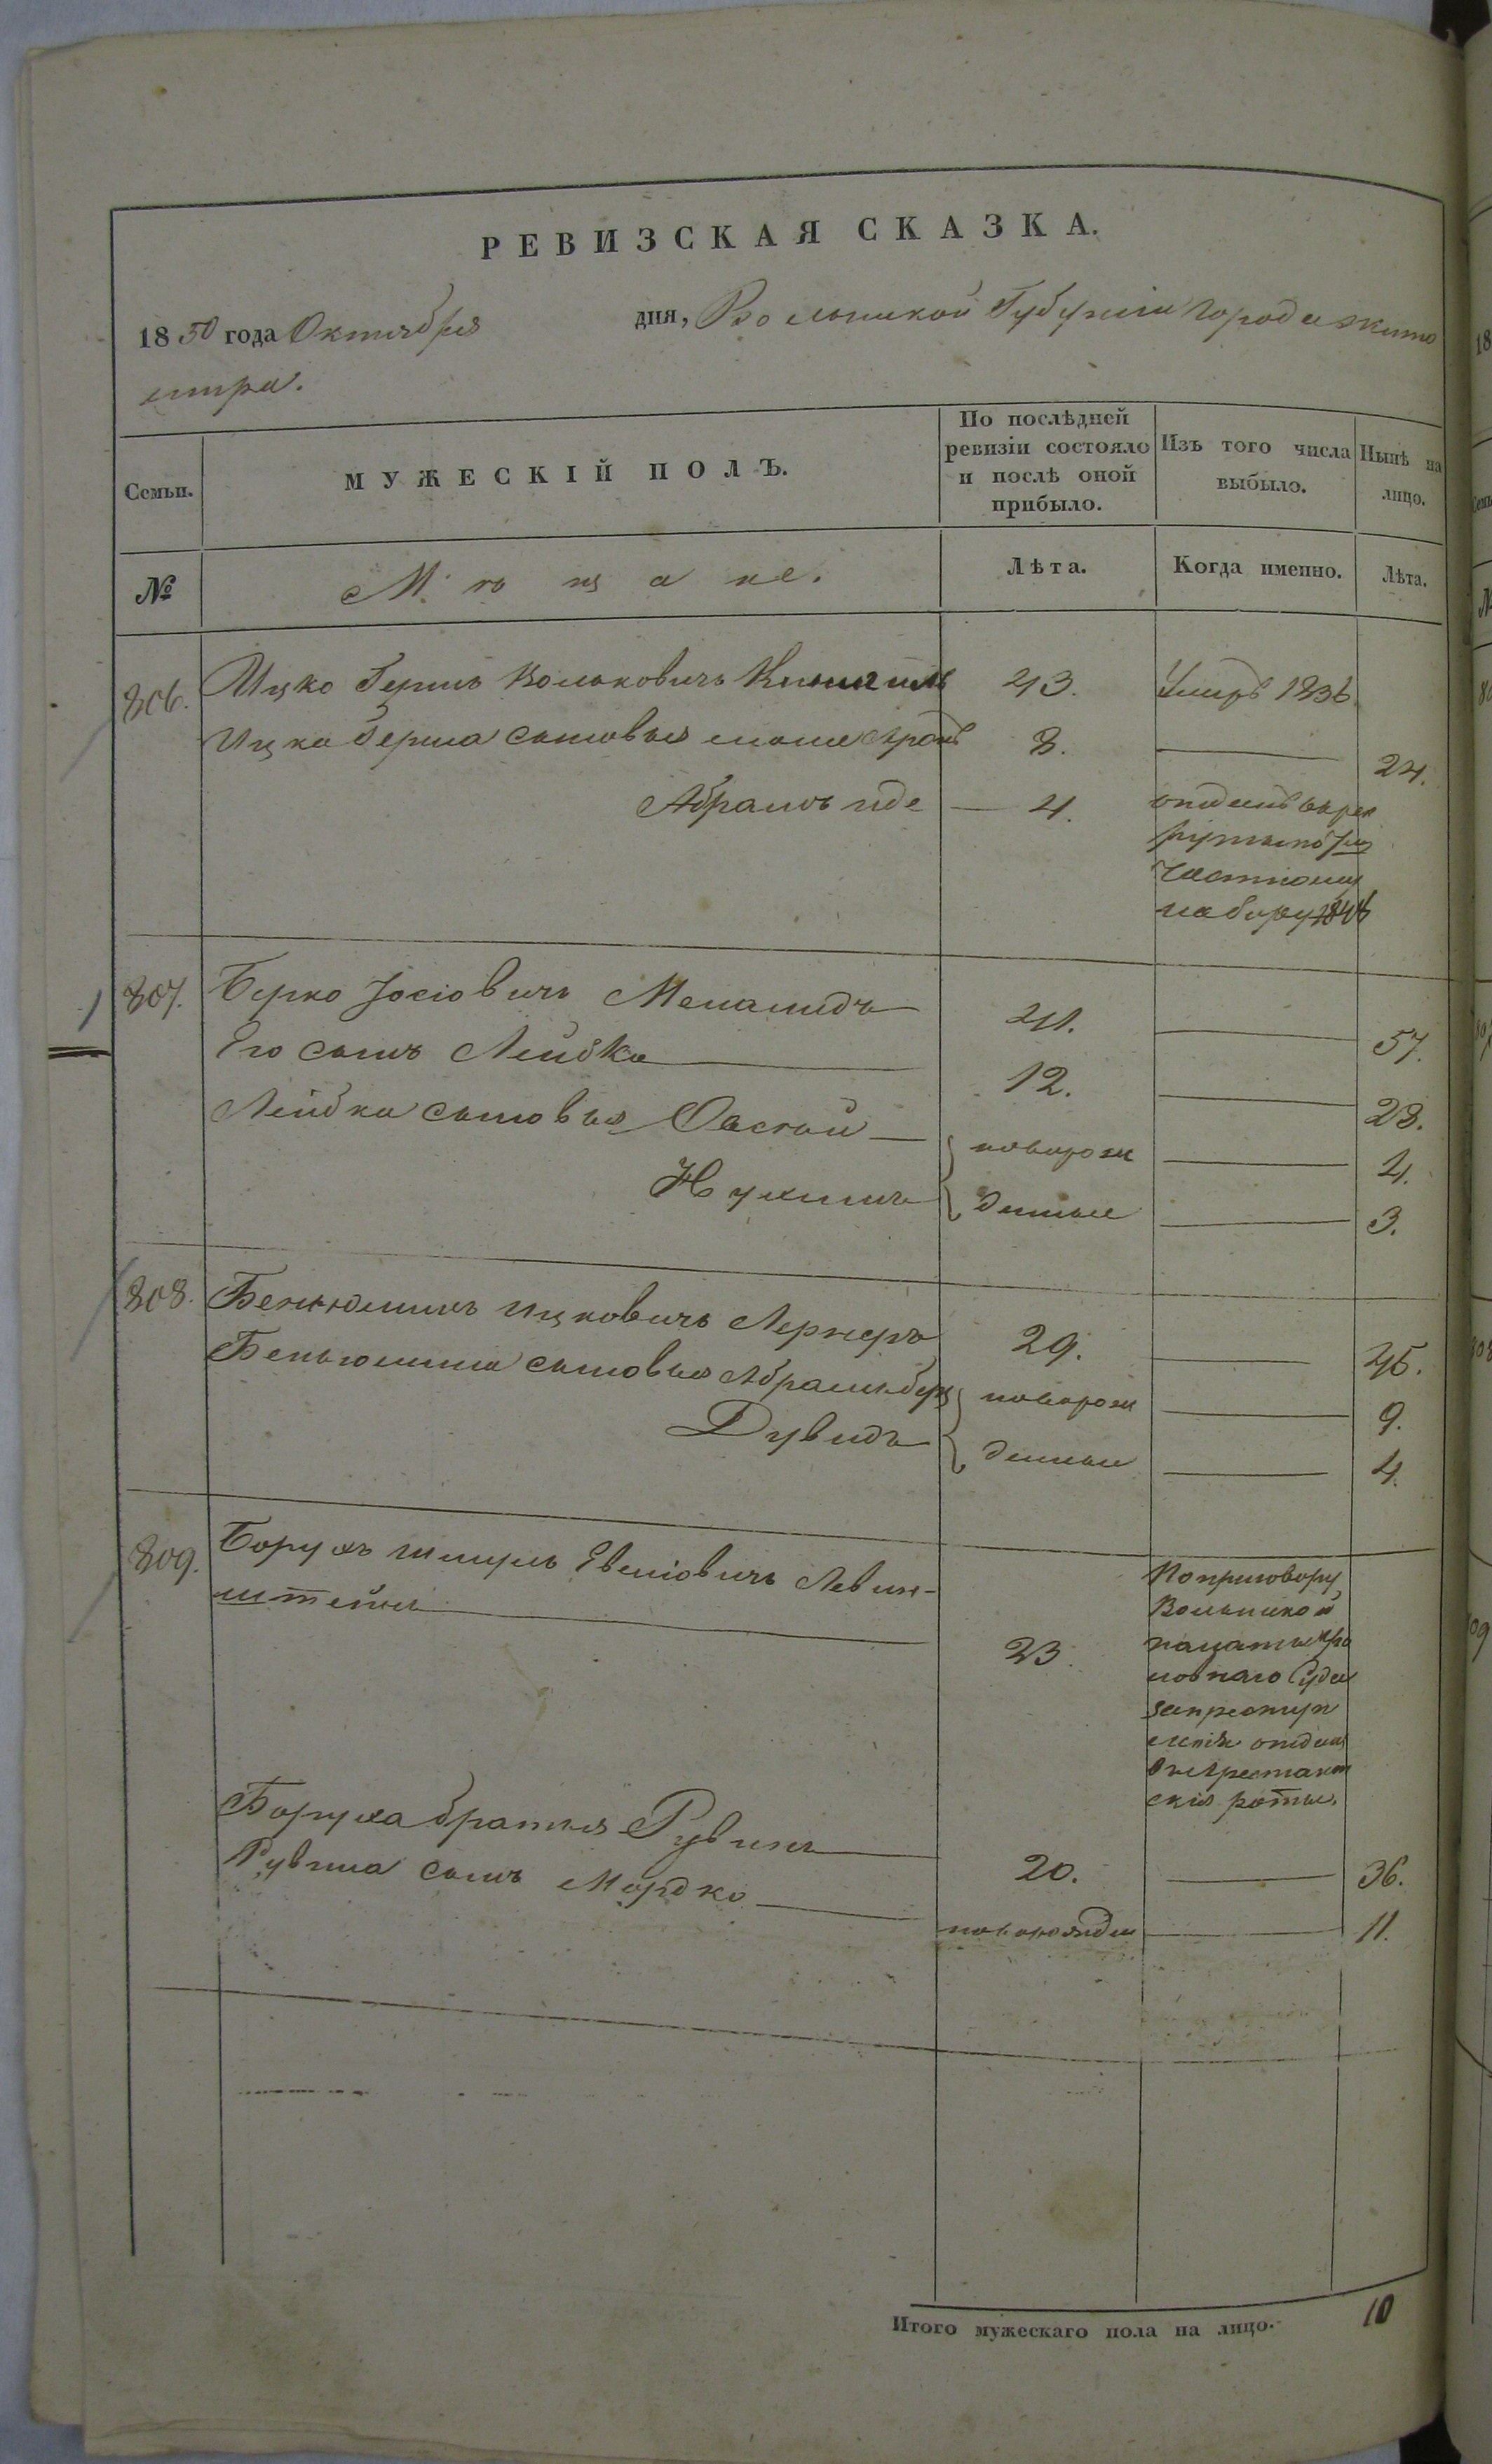 РЕВИЗСКАЯ СКАЗКА.
1850 года Октября дня, Волынской Губерніи города Жито
мира.
Семьи.
МУЖЕСКІЙ ПОЛЪ.
По послѣдней
ревизіи состояло
и послѣ оной
прибыло.
Изъ того числа
выбыло.
Нынѣ на
лицо.
№
Мѣщане.
Лѣта.
Когда именно.
Лѣта.
806. Ицко Гершъ Вольковичъ 43. Умеръ 1836
Ицка Герша сыновья Аронъ 8. 24.
Абрамъ 4. отданъ въ рек
руты по
частному
набору
807. Берко Іосіовичъ Меламидъ 41. 57.
Его сынъ Лейбка 12. 28.
Лейбки сыновья Овсѣй новорож 4.
Нухимъ денные 3.
808. Беньюминъ Ицковичъ Лернеръ 29. 45.
Беньюмина сыновья новорож 9.
Дувидъ денные 4.
809. Борухъ Шмуль Левин-
штейнъ 23.
По приговору
Волынской
палаты Уго
ловнаго Суда
за преступ
ленія отданъ
въ Арестант
скія роты.
Боруха братья Рувинъ 20. 36.
Рувина сынъ Мордко новорожден 11.
Итого мужескаго пола на лицо. 10